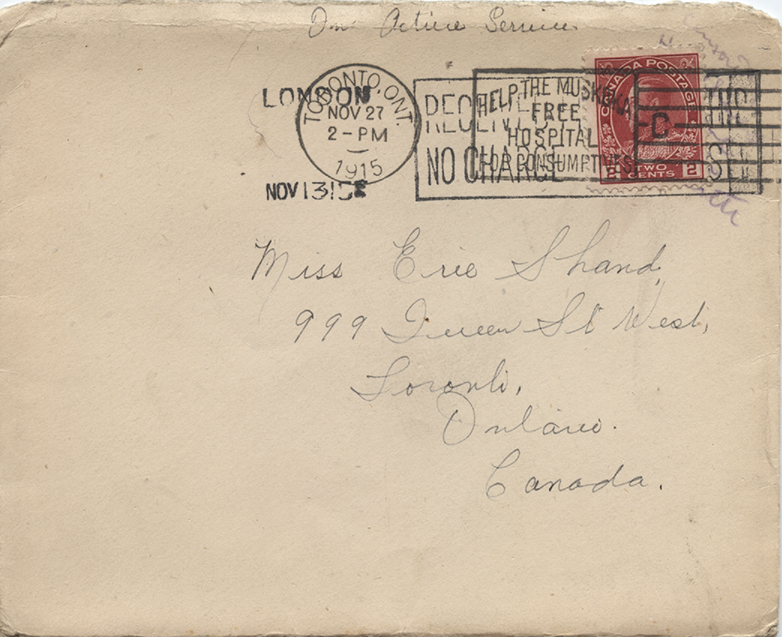 On Active Service
LONDON
NOV 13 15
TORONTO, ONT.
NOV 27
2-PM
1915
NO CHARGE
HELP THE MUSKOKA
FREE
HOSPITAL
FOR CONSUMPTIVES
C
CANADA POSTAGE
2 TWO CENTS 2
Miss Erie Shand,
999 Queen St West,
Toronto,
Ontario.
Canada.